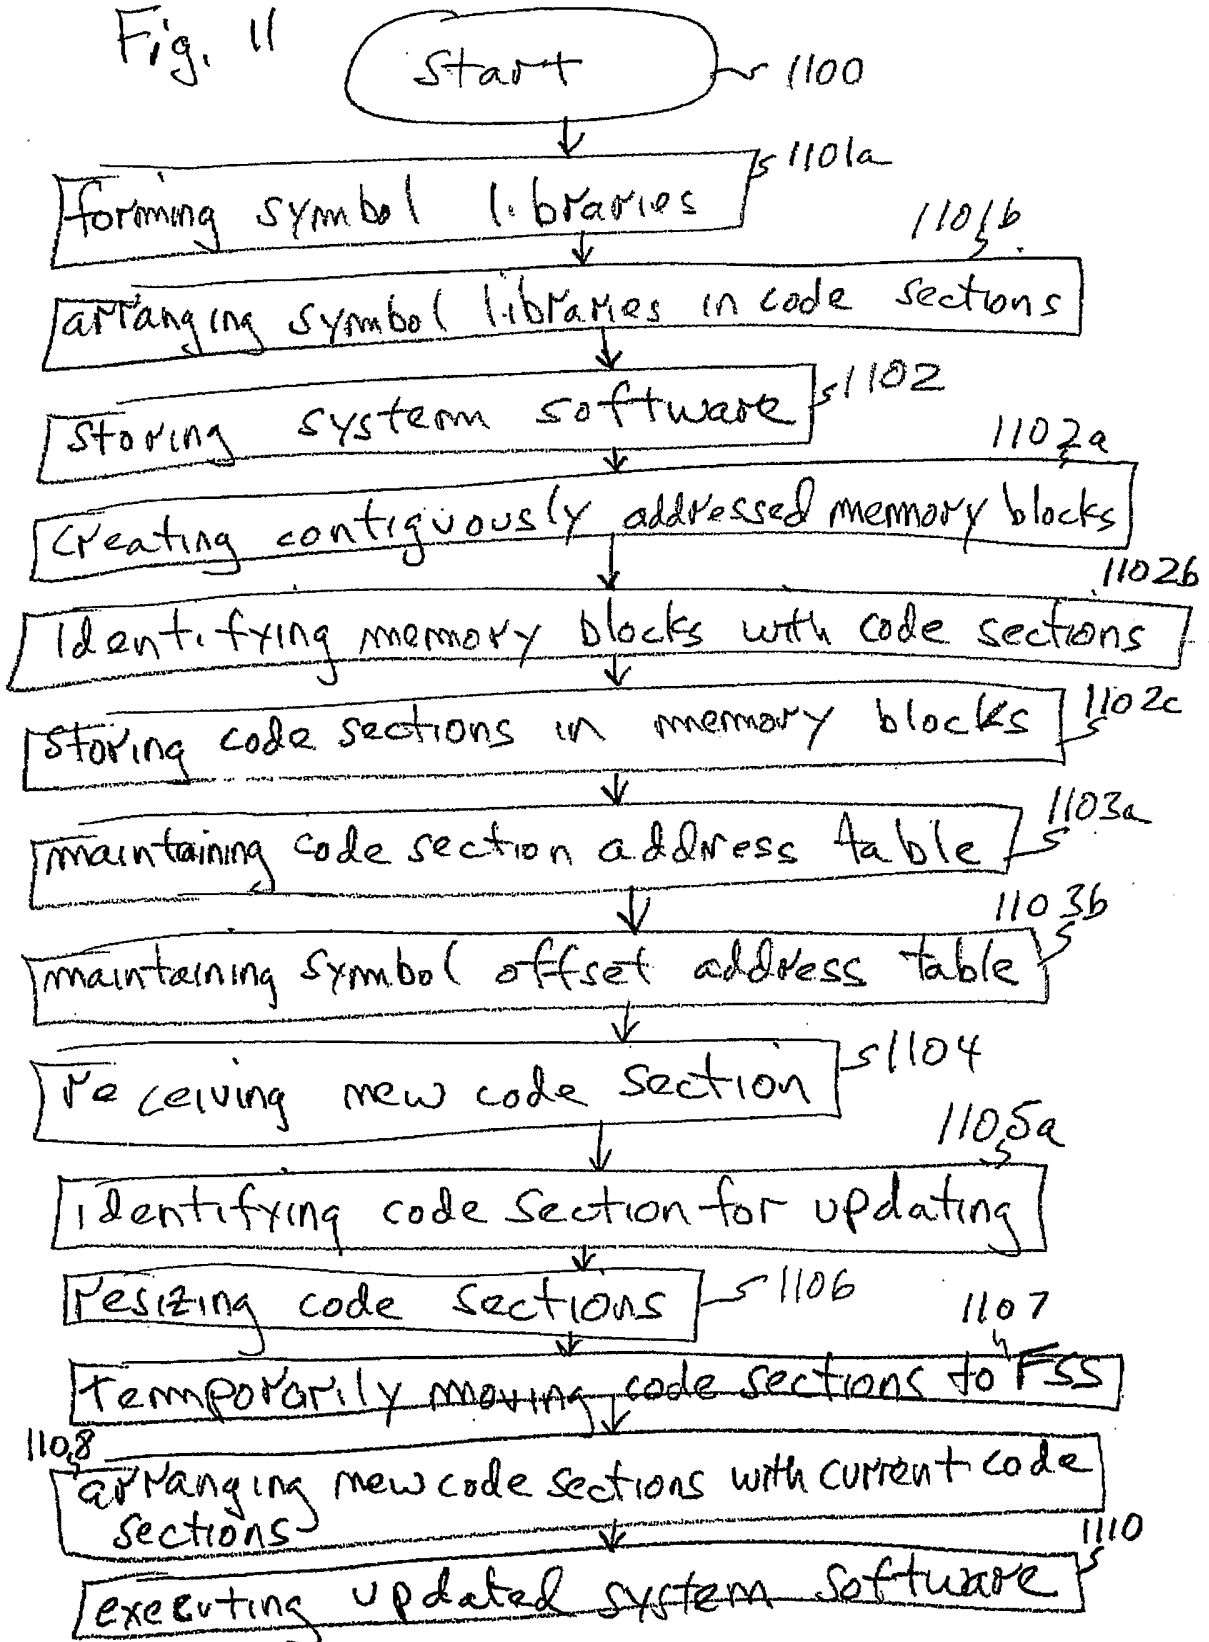 Fig. 11
Start
1100
1101a
forming symbol libraries
1101b
arranging symbol libraries in code sections
1102
storing system software
1102a
creating contiguously addressed memory blocks
1102b
identifying memory blocks with code sections
storing code sections in memory blocks
1102c
1103a
maintaining code section address table
1103b
maintaining symbol offset address table
1104
receiving new code section
1105a
identifying code section for updating
resizing code sections
1106
1107
temporarily moving code sections to FSS
1108
arranging new code sections with current code
sections
1110
executing updated system software